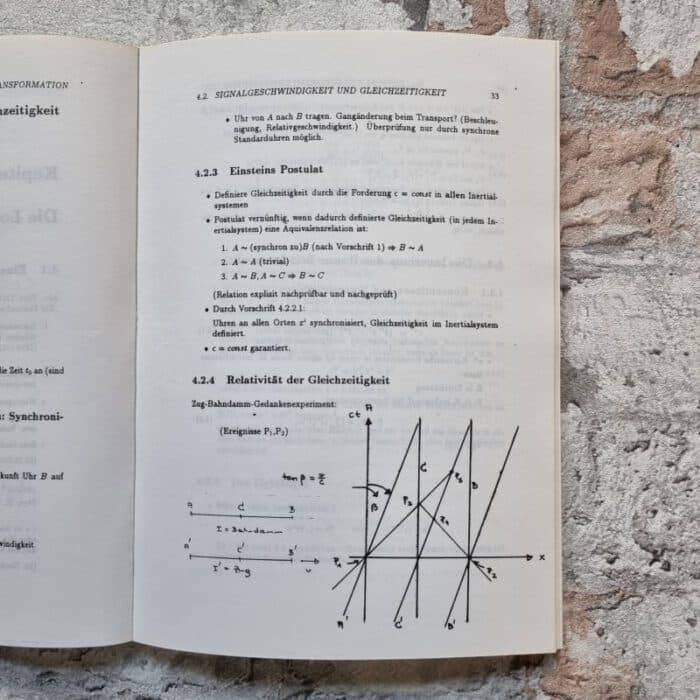 ANSFORMATION
hzeitigkeit
die Zeit t₀ an (sind
: Synchroni-
kunft Uhr B auf
windigkeit.
4.2. SIGNALGESCHWINDIGKEIT UND GLEICHZEITIGKEIT 33
• Uhr von A nach B tragen. Gangänderung beim Transport? (Beschleu-
nigung, Relativgeschwindigkeit.) Überprüfung nur durch synchrone
Standarduhren möglich.
4.2.3 Einsteins Postulat
• Definiere Gleichzeitigkeit durch die Forderung c = const in allen Inertial-
systemen
• Postulat vernünftig, wenn dadurch definierte Gleichzeitigkeit (in jedem In-
ertialsystem) eine Äquivalenzrelation ist:
1. A ~ (synchron zu)B (nach Vorschrift 1) ⇒ B ~ A
2. A ~ A (trivial)
3. A ~ B, A ~ C ⇒ B ~ C
(Relation explizit nachprüfbar und nachgeprüft)
• Durch Vorschrift 4.2.2.1:
Uhren an allen Orten xⁱ synchronisiert, Gleichzeitigkeit im Inertialsystem
definiert.
• c = const garantiert.
4.2.4 Relativität der Gleichzeitigkeit
Zug-Bahndamm-Gedankenexperiment:
(Ereignisse P₁,P₂)
tan β = v/c
A C B
I = Bahndamm
A' C' B'
I' = Zug v
ct A
C B
β
P₃ P₅
P₄
P₁ P₂ x
A' C' B'